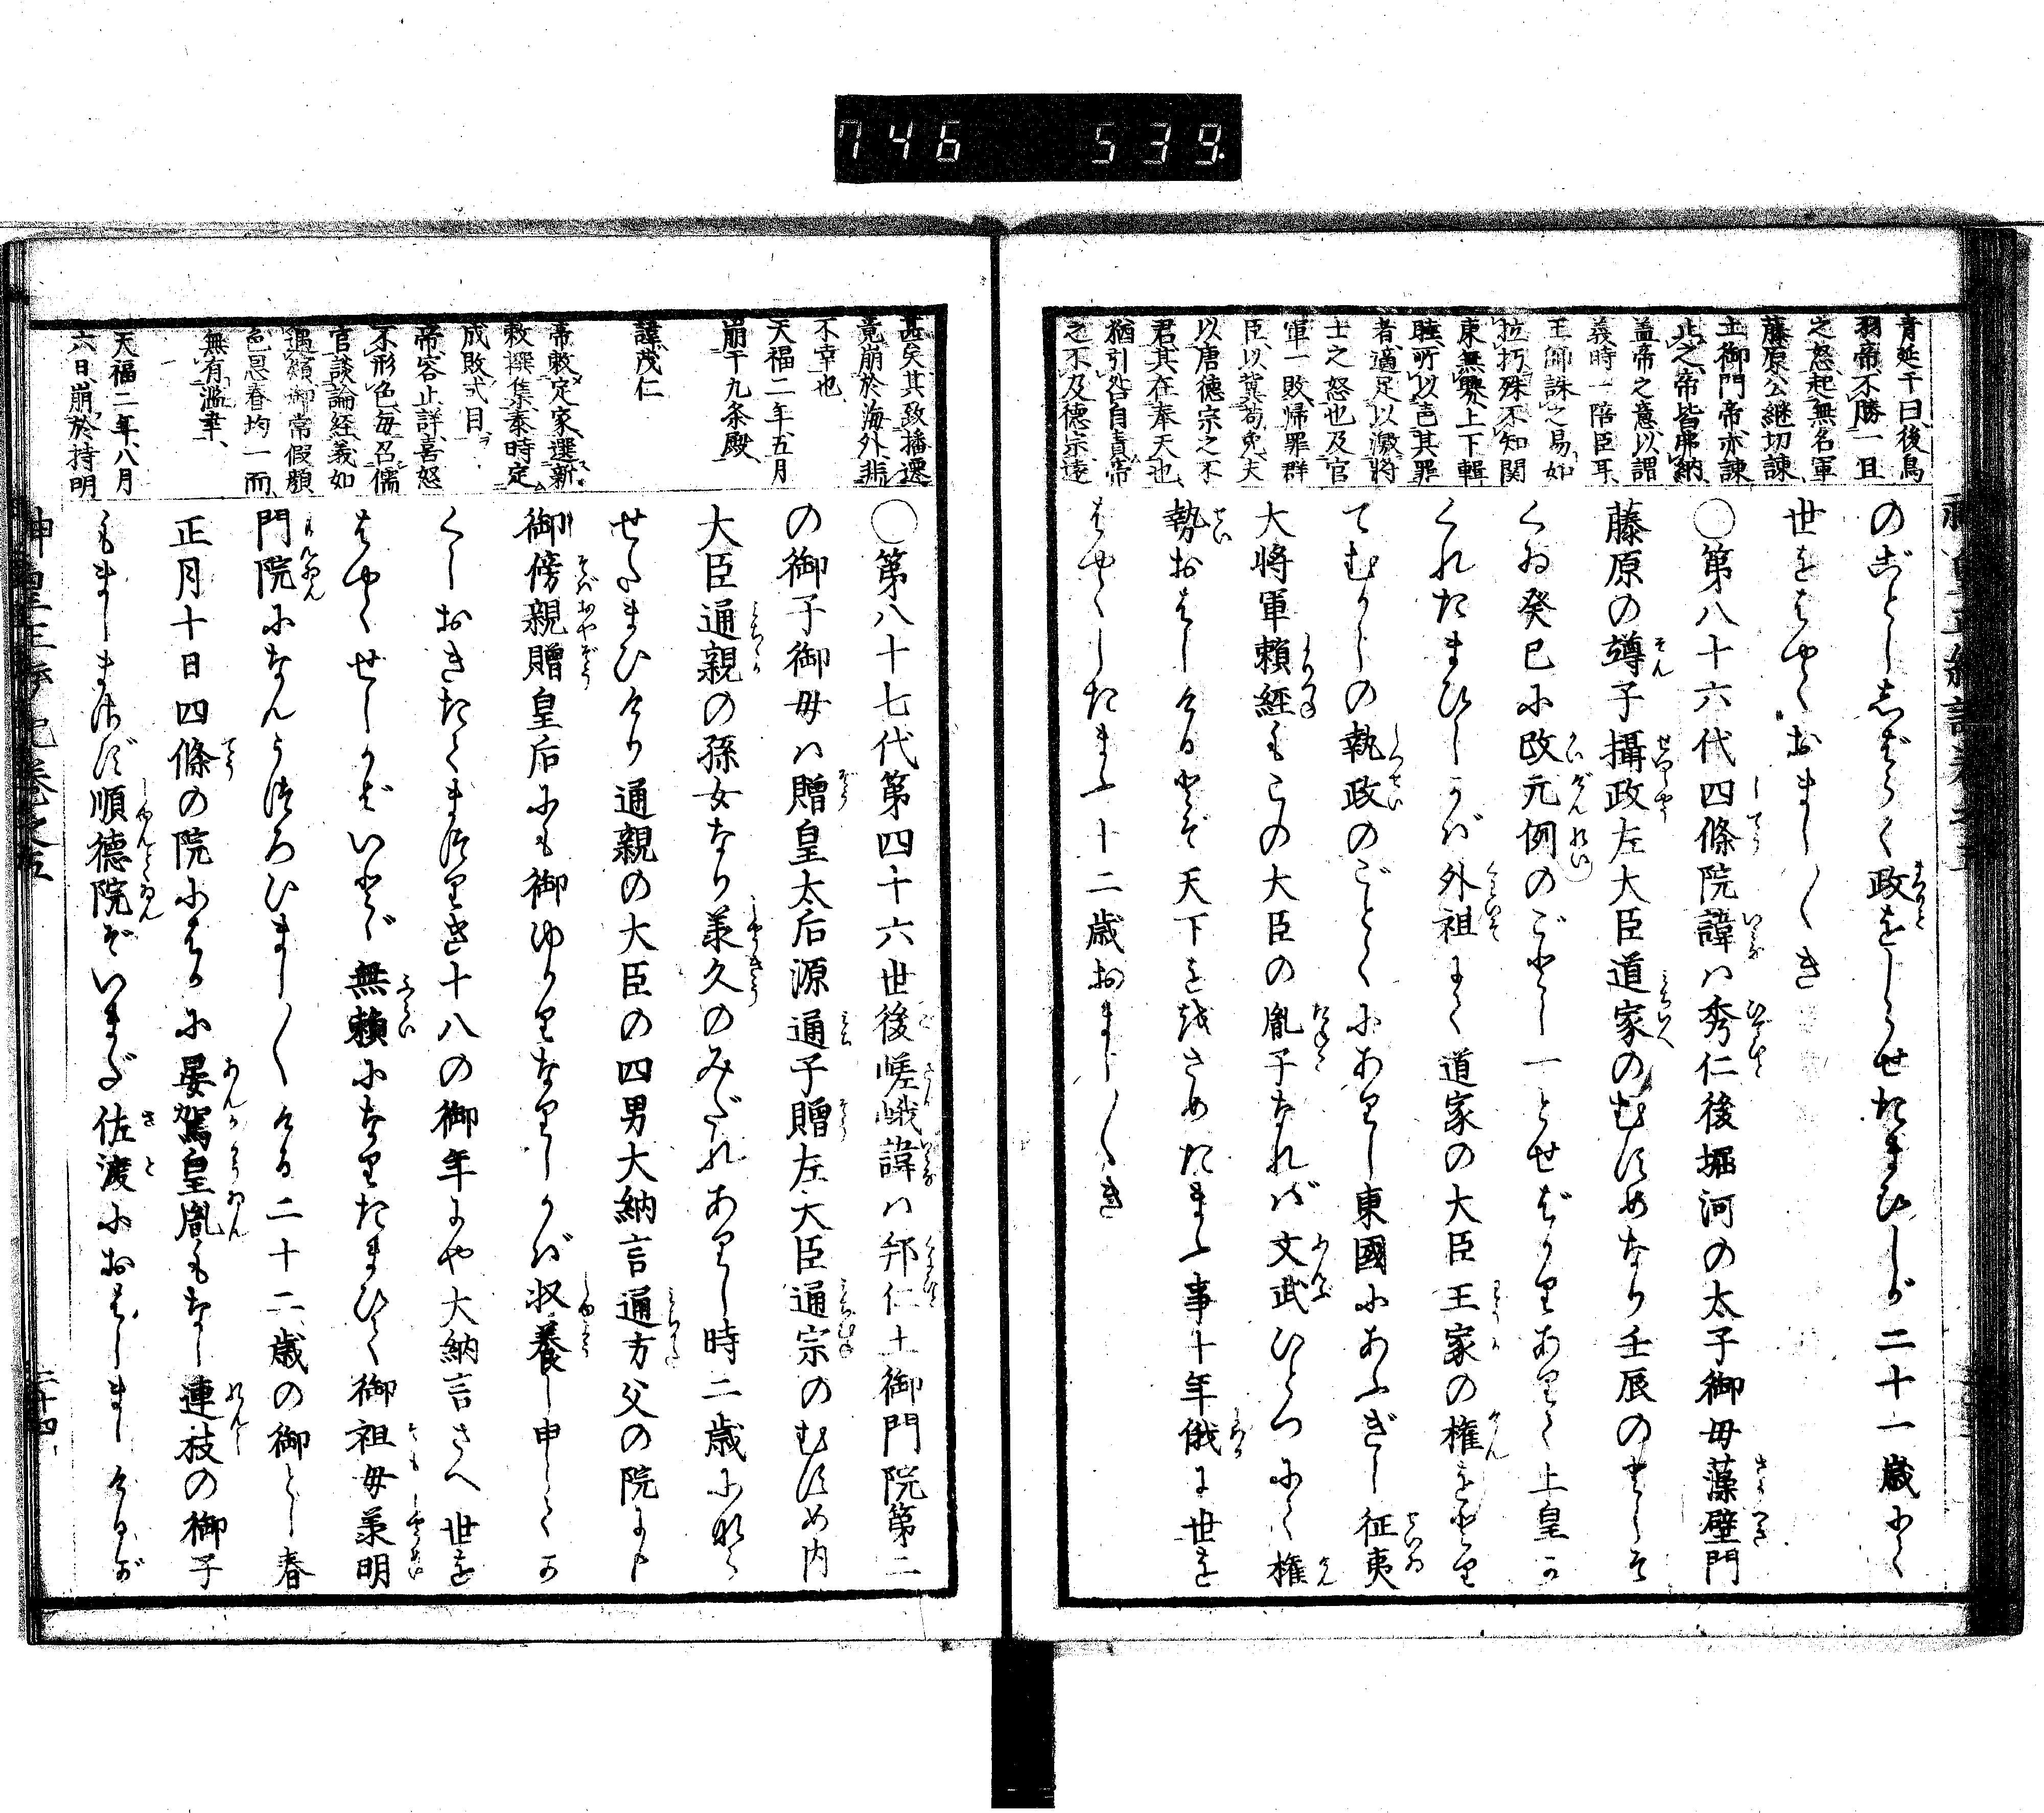 746 539.
青延于曰後鳥
羽帝不勝一旦
之怒起無名軍
藤原公継切諫
土御門帝亦諫
止之帝皆弗納
盖帝之意以謂
義時一陪臣耳
王師誅之易如
拉朽殊不知関
東無釁上下輯
睦所以
者適足以激将
士之怒也及官
軍一敗帰罪群
臣以冀苟免夫
以唐徳宗之不
君其在奉天也
猶引咎自責帝
之不及徳宗遠
のごとししばらく政をしらせたまひしが二十一歳にて
世をはやくおまし〱き
〇第八十六代四條院諱ハ秀仁後堀河の太子御母藻壁門
藤原の竴子攝政左大臣道家のむすめなり壬辰のとし
くゐ癸巳に改元例のごとし一とせばかりありて上皇か
くれたまひしかば外祖にて道家の大臣王家の権をとり
てむかしの執政のごとくにありし東國にあふぎし征夷
大将軍頼経もこの大臣の胤子なれば文武ひとつにて権
勢おはしけるとぞ天下を治さめたまふ事十年俄に世を
はやくしたまふ十二歳おまし〱き
甚矣其致播遷
竟崩於海外非
不幸也
天福二年五月
崩于九条殿
諱茂仁
帝敕定家選新
敕撰集泰時定
成敗式目
帝容止詳喜怒
不形色毎召儒
官談論経義如
遇頬御常假顔
色恩春均一而
無有濫幸
天福二年八月
六日崩於持明
〇第八十七代第四十六世後嵯峨諱ハ邦仁土御門院第二
の御子御母ハ贈皇太后源通子贈左大臣通宗のむすめ内
大臣通親の孫女なり羕久のみだれありし時二歳になら
せたまひけり通親の大臣の四男大納言通方父の院にも
御傍親贈皇后にも御ゆかりなりしかば収養し申してか
くしおきたてまつりき十八の御年にや大納言さへ世を
はやくせしかばいとゞ無頼になりたまひて御祖母羕明
門院になんうつろひまし〱ける二十二歳の御とし春
正月十日四條の院にはかに晏駕皇胤もなし連枝の御子
もましまさず順徳院ぞいまだ佐渡におはしましけるが